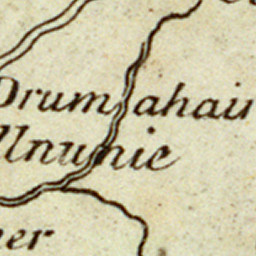 Drumahair
llnunie
er